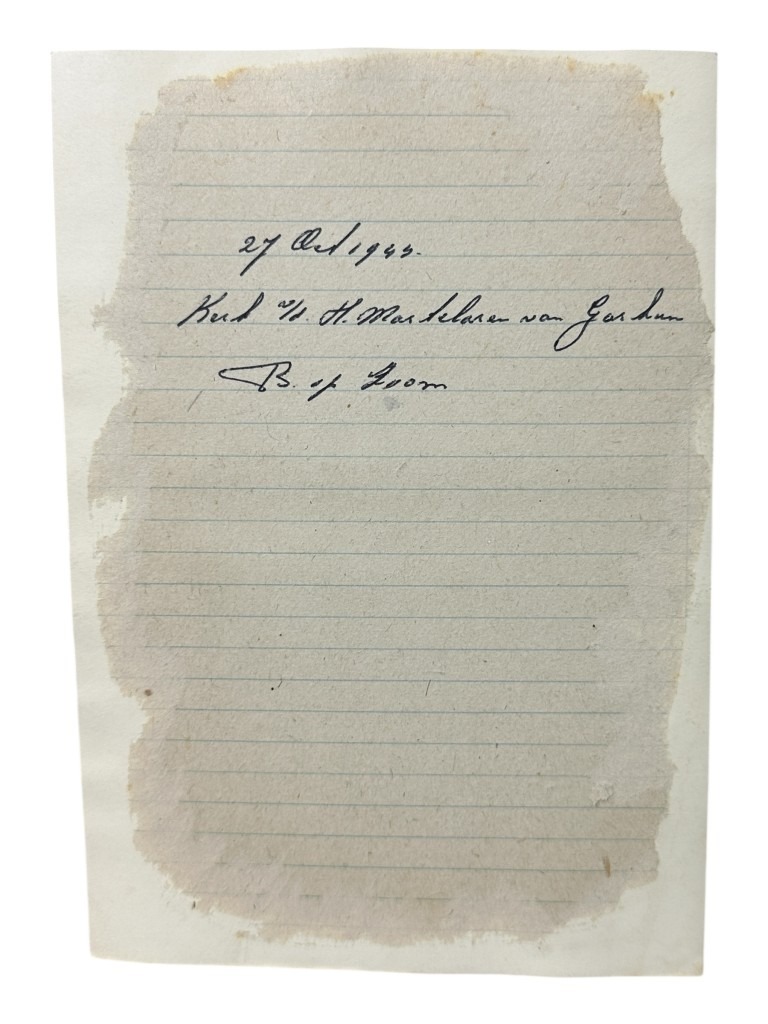 27 Oct 1944.
Kerk v/d. H. Martelaren van Gorkum
B. op Zoom